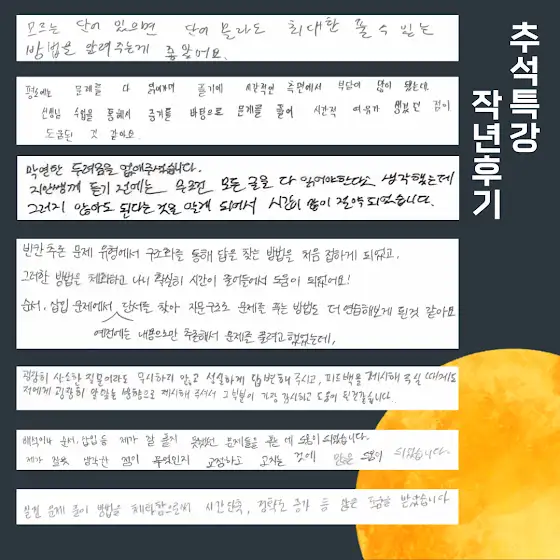 추석특강
작년후기
모르는 단어 있으면 단어 몰라도 최대한 풀 수 있는
방법을 알려주는게 좋았어요.
평소에는 문제를 다 읽어가며 풀기에 시간적인 측면에서 부담이 많이 됐는데
선생님 수업을 통해서 근거를 바탕으로 문제를 풀어 시간적 여유가 생겼던 점이
도움된 것 같아요.
막연한 두려움을 없애주셨습니다.
지안쌤께 듣기 전에는 무조건 모든 글을 다 읽어야한다고 생각했는데
그러지 않아도 된다는 것을 알게 되어서 시간이 많이 절약되었습니다.
빈칸추론 문제 유형에서 구조화를 통해 답을 찾는 방법을 처음 접하게 되었고,
그러한 방법을 체화하고 나니 확실히 시간이 줄어들어서 도움이 되었어요!
순서, 삽입 문제에서 단서를 찾아 지문구조로 문제를 푸는 방법도 더 연습해보게 된것 같아요
예전에는 내용으로만 추론해서 문제를 풀려고 했었는데,
굉장히 사소한 질문이라도 무시하지 않고 성실하게 답변해 주시고, 피드백을 제시해 주실 때에도
저에게 굉장히 맞는 방향으로 제시해 주셔서 그 부분이 가장 감사하고 도움이 된것같습니다.
해석이나 순서, 삽입 등 제가 잘 풀지 못했던 문제들을 푸는 데 도움이 되었습니다.
제가 잘못 생각한 점이 무엇인지 교정하고 고치는 것에 많은 도움이 되었습니다.
문제 풀이 방법을 체화함으로써 시간단축, 정확도 증가 등 많은 도움을 받았습니다